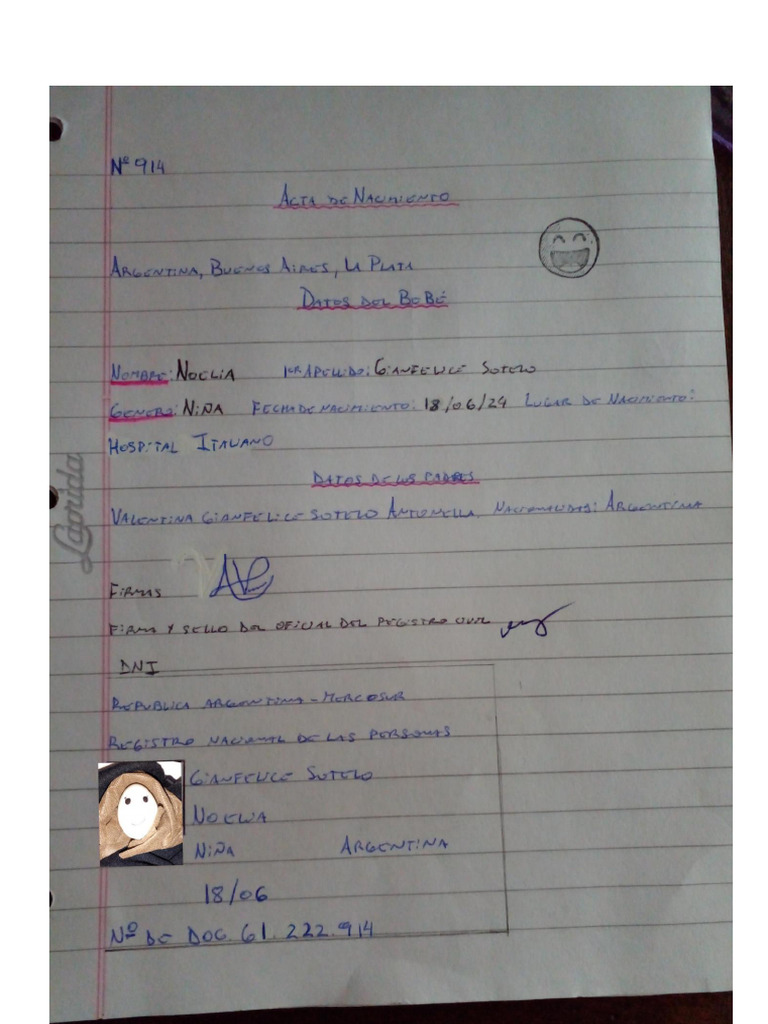 Nº 914
ACTA DE NACIMIENTO
ARGENTINA, BUENOS AIRES, LA PLATA
DATOS DEL BEBÉ
NOMBRE: NOELIA 1ER APELLIDO: GIANFELICE SOTELO
GENERO: NIÑA FECHA DE NACIMIENTO: 18/06/24 LUGAR DE NACIMIENTO:
HOSPITAL ITALIANO
DATOS DE LOS PADRES
VALENTINA GIANFELICE SOTELO ANTONELLA, NACIONALIDAD: ARGENTINA
Laprida
FIRMAS
FIRMA Y SELLO DEL OFICIAL DEL REGISTRO CIVIL
DNI
REPUBLICA ARGENTINA - MERCOSUR
REGISTRO NACIONAL DE LAS PERSONAS
GIANFELICE SOTELO
NOELIA
NIÑA ARGENTINA
18/06
Nº DE DOC. 61.222.914